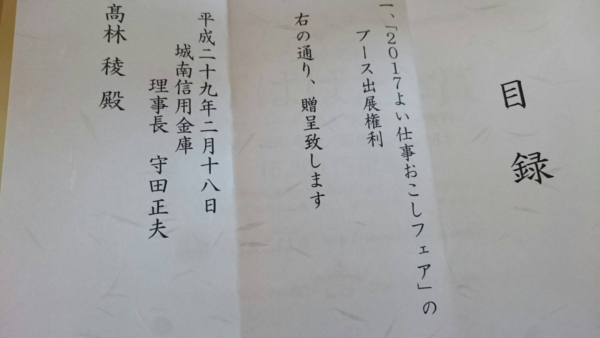 目録
一、「2017よい仕事おこしフェア」の
ブース出展権利
右の通り、贈呈致します
平成二十九年二月十八日
城南信用金庫
理事長 守田正夫
髙林稜殿